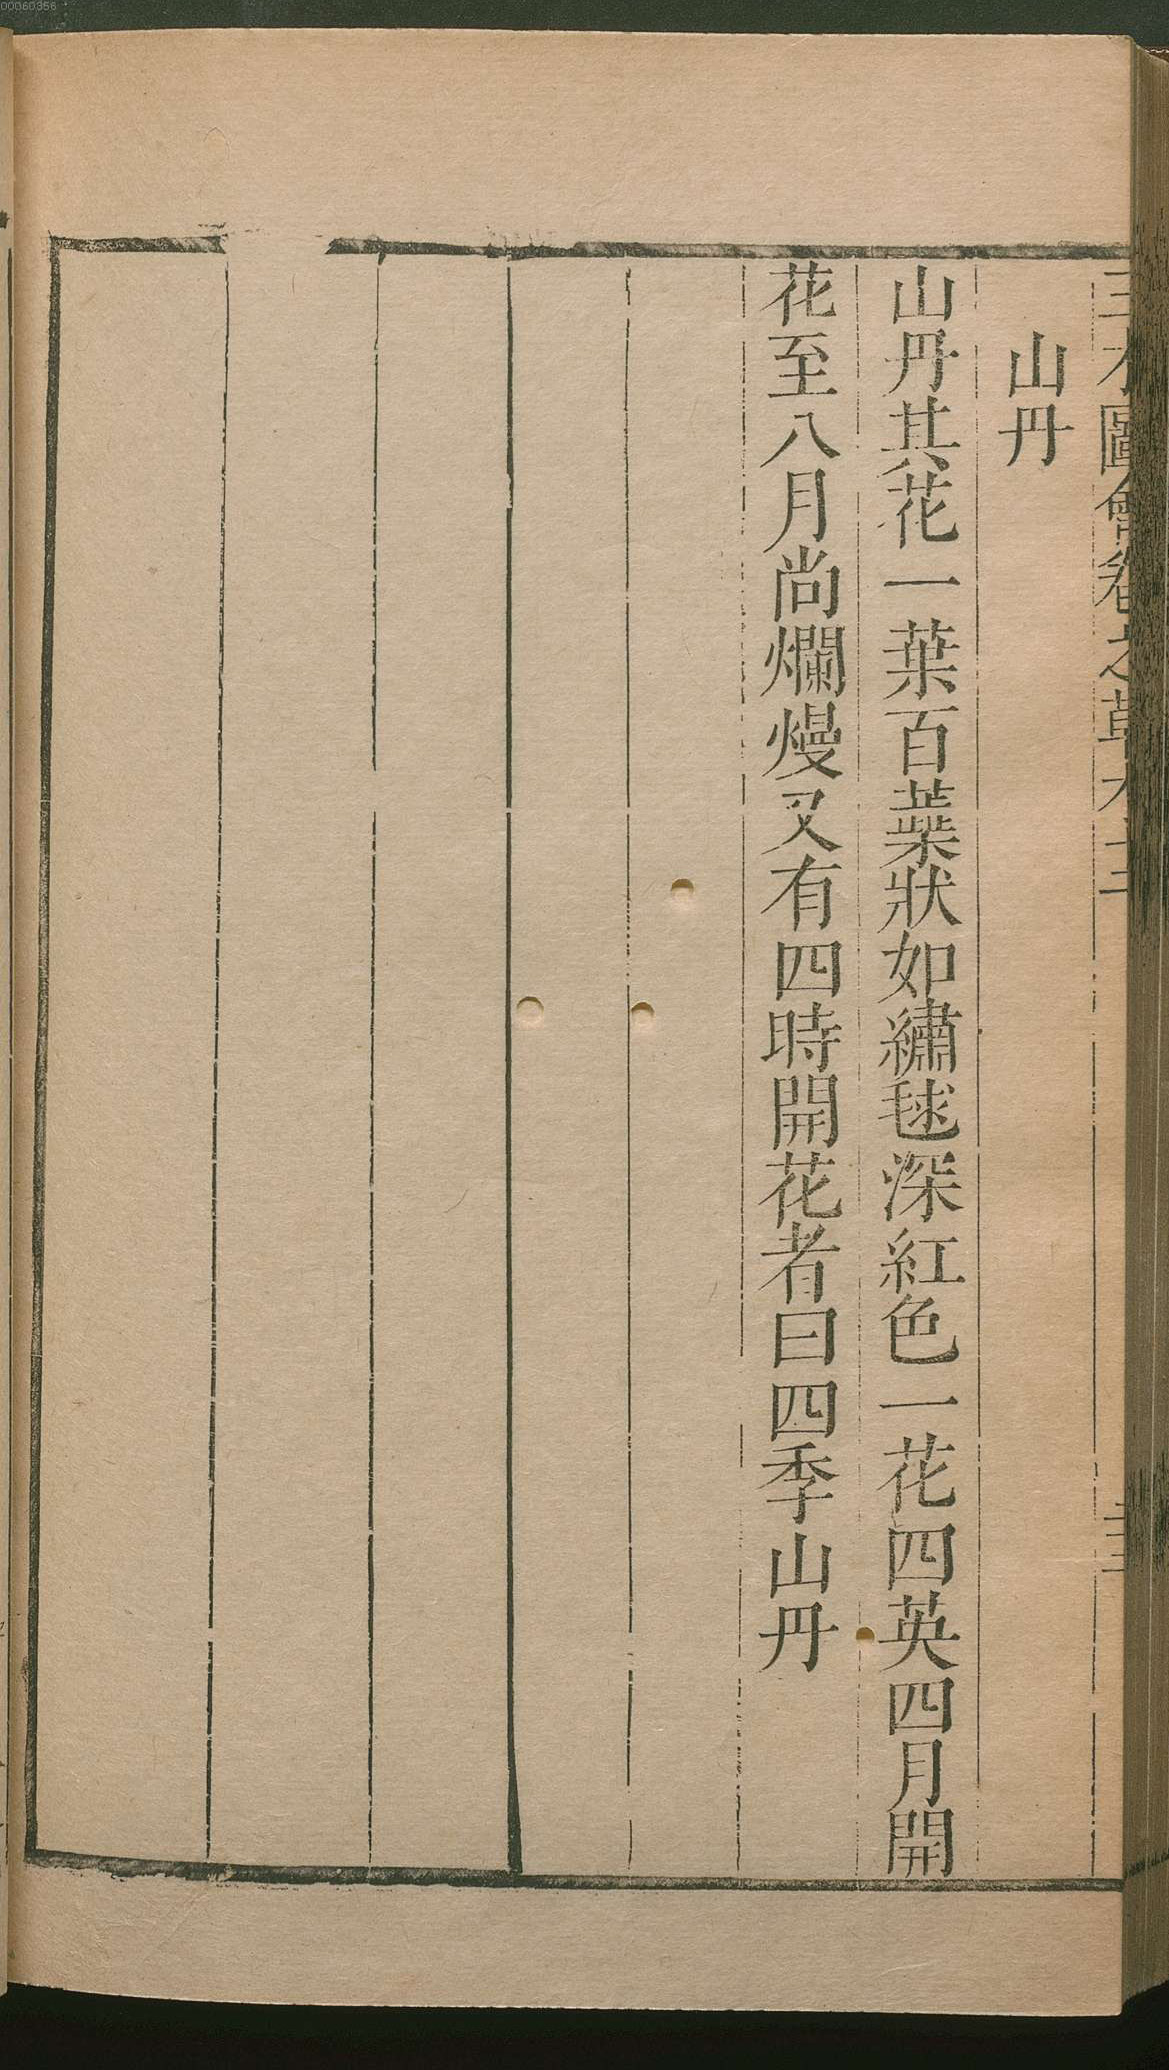 00060356
三才圖會卷之草木十二
山丹
山丹其花一葉百蘂狀如繡毬深紅色一花四英四月開
花至八月尚爛熳又有四時開花者曰四季山丹